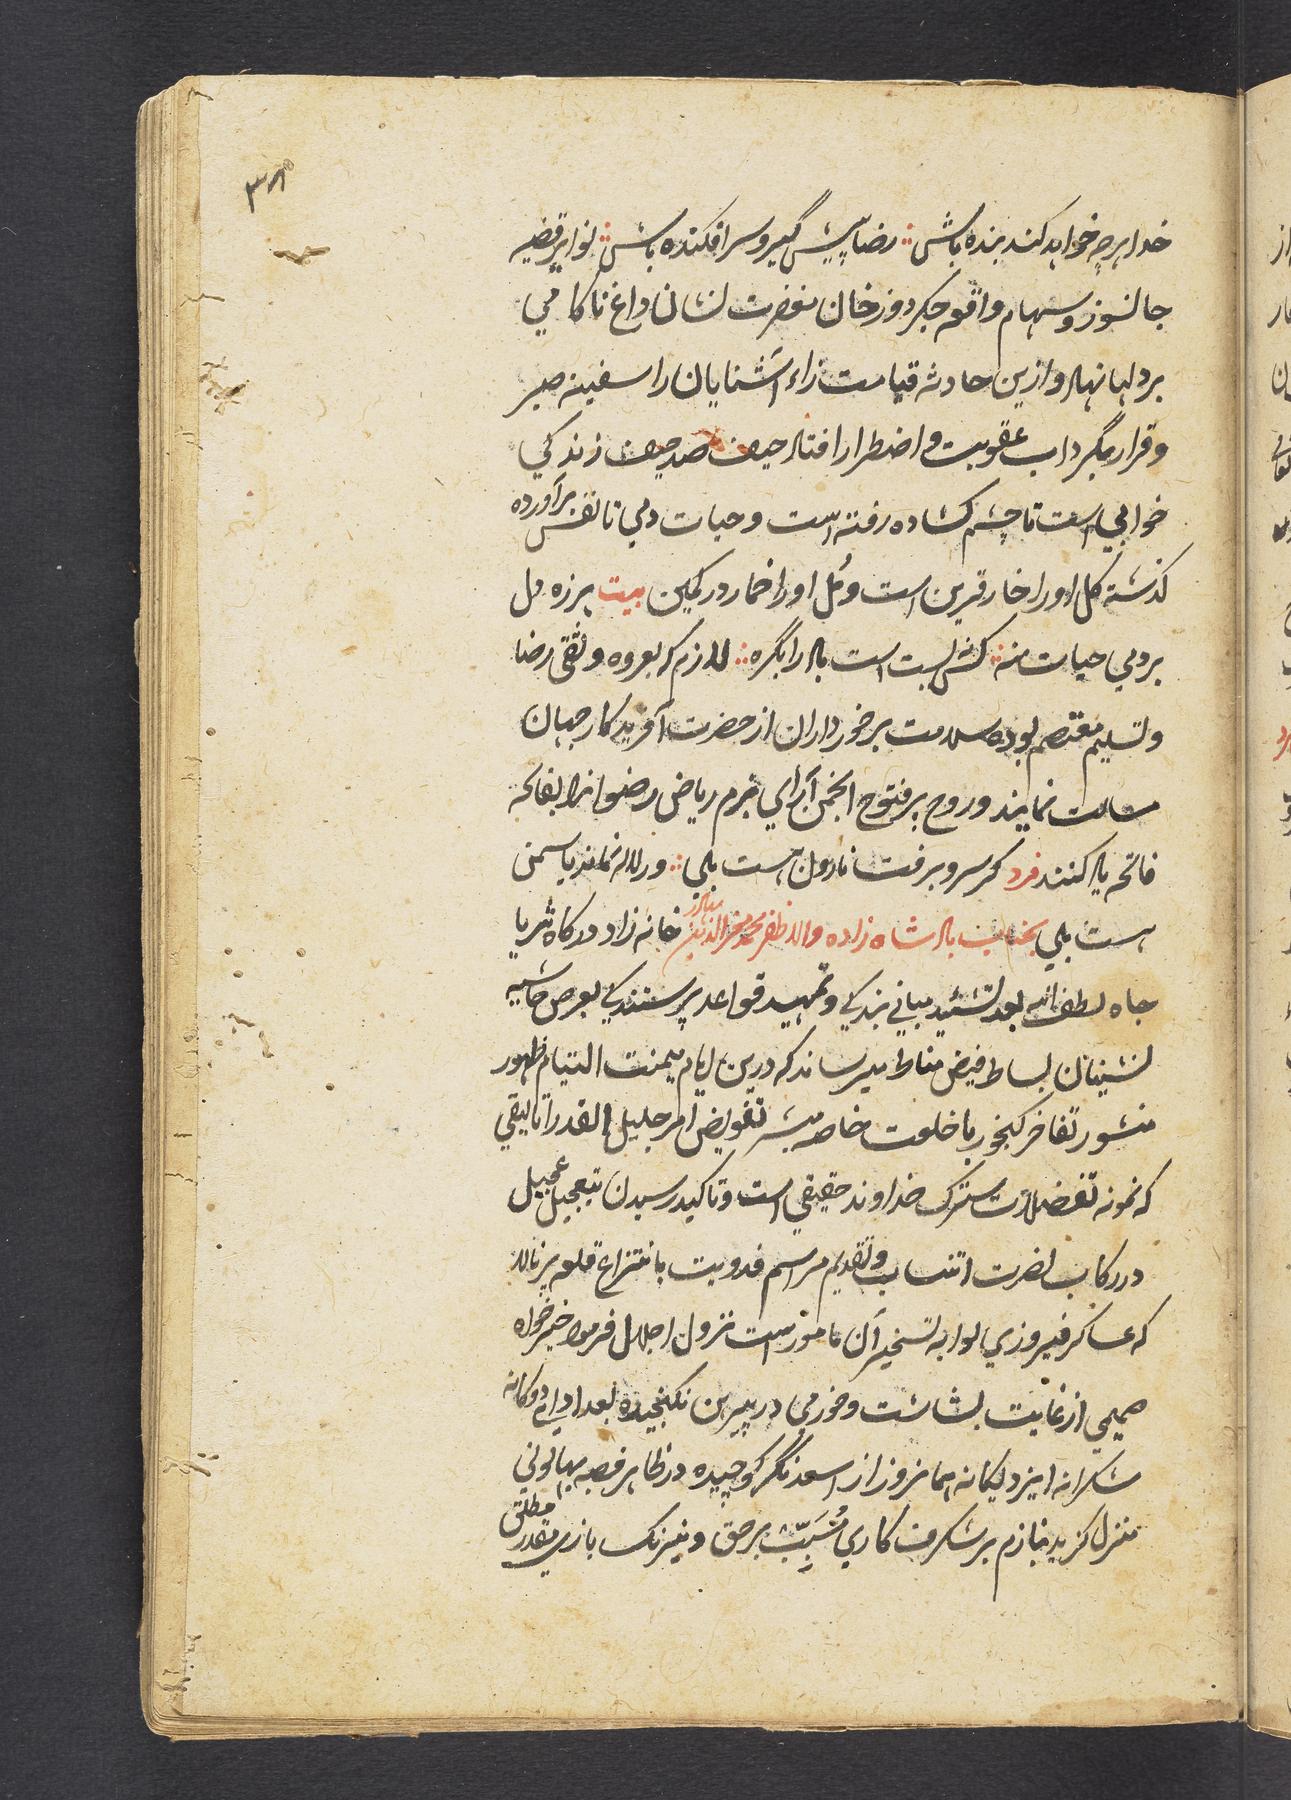 خدا هرچه خواهد کند بنده باش ؞ رضا پیش گیر و سرافکنده باش ؞ نوایر قضیه
جانسوز و سهام واقعه جگردوز خان مغفرت نشان داغ ناکامی
بر دلها نهاد و ازین حادثه قیامت زاء آشنایان را سفینه صبر
و قرار بگرداب عقوبت و اضطرار افتاد حیف صد حیف زندگی
خوابی است تا چشم کشاده رفته است و حیات دمی تا نفس برآورده
گذشته گل او را خار قرین است و مُل او را خمار در کمین بیت هرزه دل
بر حیات منه ؞ کش بست است باد را بگره ؞ لازم که بعروه وثقی رضا
و تسلیم معتصم بوده سلامت برخورداران از حضرت آفریدگار جهان
مسالت نمایند و روح پرفتوح انجمن آرای بزم ریاض رضوانرا بفاکهه
فاتحه یاد کنند فرد گر سرو برفت نارون هست بلی ؞ ور لاله نماند یاسمن
هست بلی بجناب بادشاه زاده والا ظفر محمد معزالدین بهادر خانه زاد درگاه ثریا
جاه لطف الله بعد تشئید مبانی بندگی و تمهید قواعد پرستندگی بعرض حاشیه
نشینان بساط فیض مناط میرساند که درین ایام میمنت التیام ظهور
منشور تفاخر گنجور با خلعت خاصه مبشر تفویض امر جلیل القدر اتالیقی
که نمونه تفضلات سترک خداوند حقیقی است و تاکید رسیدن بتعجیل عجیل
در رکاب نصرت انتساب و تقدیم مراسم فدویت بانتزاع قلعه پرناله
که عساکر فیروزی لوا به تسخیر آن مامورست نزول اجلال فرمود خیرخواه
صمیمی از غایت بشاشت و خورمی در پیرهن نگنجیده بعد ادای دوگانه
شکرانه ایزد یگانه همانروز از اسعدنگر کوچیده در ظاهر قصبه بهالونی
منزل گزید بنازم بر شگرف کاری مُسَبّب برحق و نیرنگ بازی مقدر مطلق